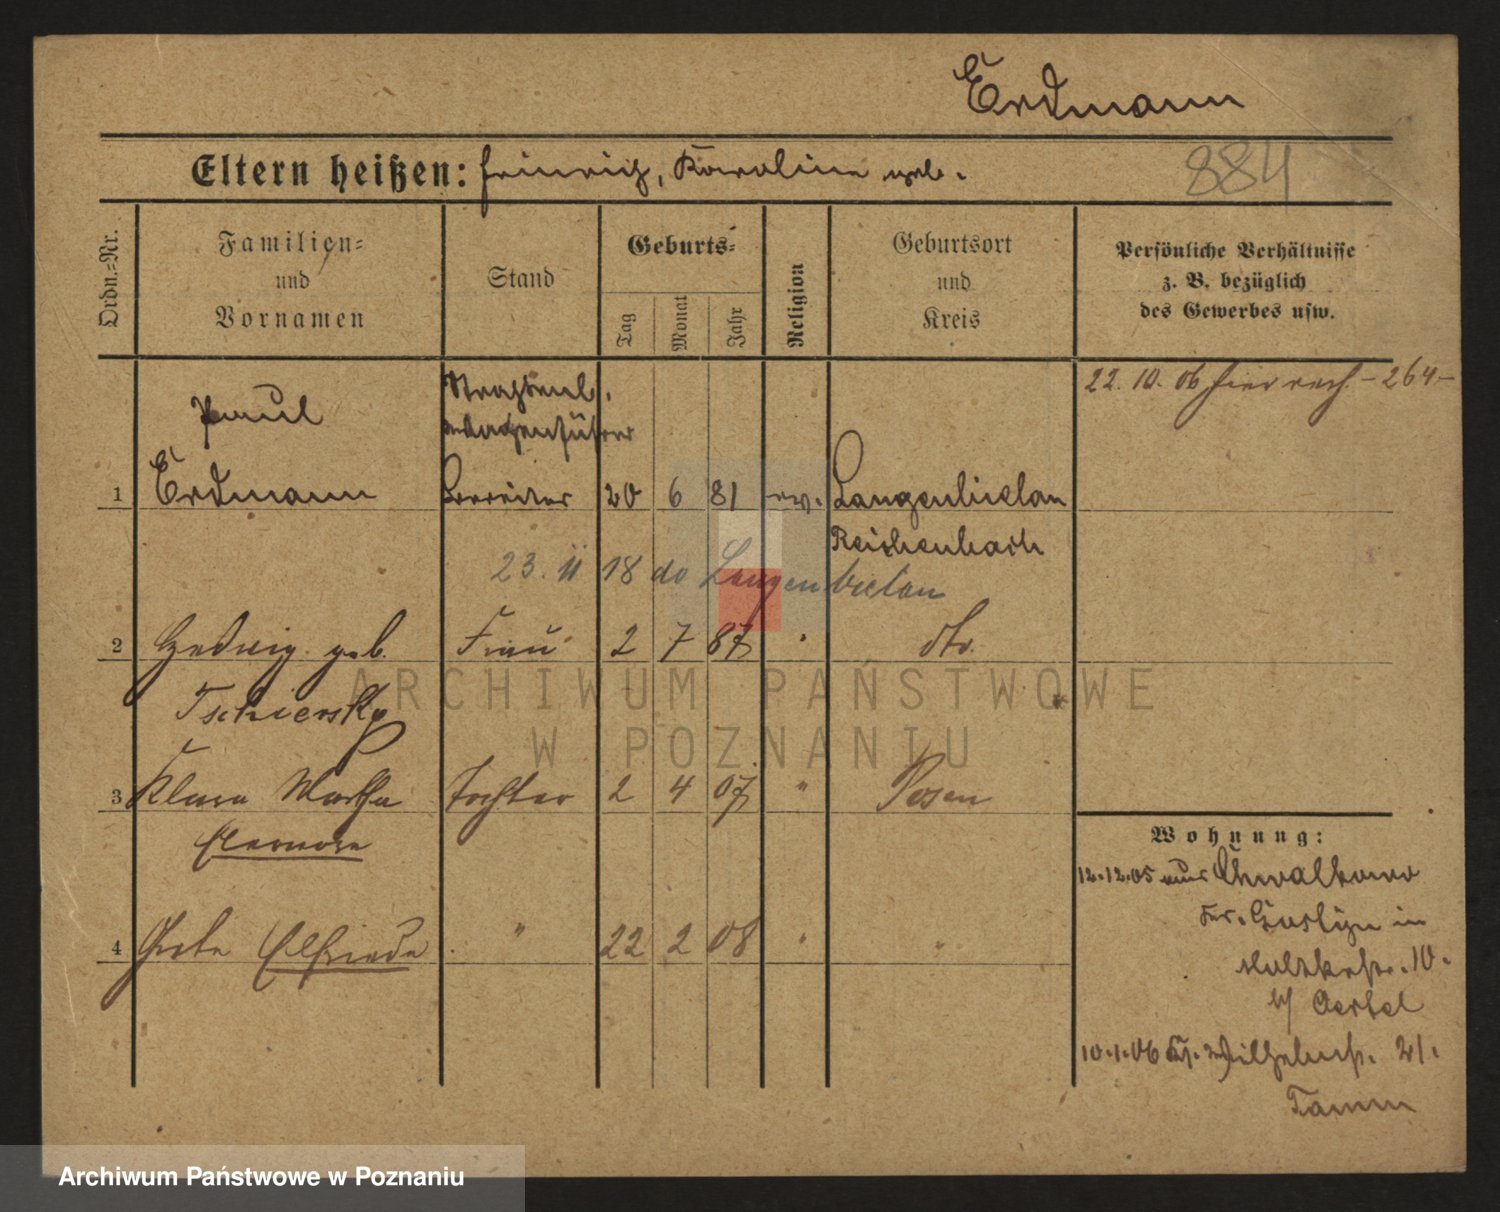 Erdmann
Eltern heißen: Heinrich, Karoline geb.
884
Ordn.=Nr.
Familien= und Vornamen
Stand
Geburts=
Tag
Monat
Jahr
Religion
Geburtsort und Kreis
Persönliche Verhältnisse z. B. bezüglich des Gewerbes usw.
22. 10. 06 hier nach - 264 -
Paul
Straßenb.
Wagenführer
1 Erdmann Bereiter 20 6 81 ev. Langenbielau
Reichenbach
23. 11 18 do Langenbielau
2 Hedwig geb. Frau 2 7 87 " dto.
Tschiersky
3 Klara Martha Tochter 2 4 07 " Posen
Eleonore
4 Grete Elfriede " 22 2 08 " "
Wohnung:
12.12.05 aus Chwalkowo
Kr. Gostyn in
Moltkestr. 10.
b/ Oertel
10.1.06 Kr. Wilhelmstr. 21.
Tamm
ARCHIWUM PAŃSTWOWE
W POZNANIU
Archiwum Państwowe w Poznaniu